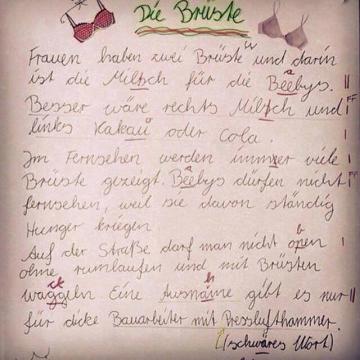 Die Brüste
Frauen haben zwei Brüste und darin
ist die Miltsch für die Beebys.
Besser wäre rechts Miltsch und
links Kakauu oder Cola.
Im Fernsehen werden immer viele
Brüste gezeigt. Beebys dürfen nicht
fernsehen, weil sie davon ständig
Hunger kriegen.
Auf der Straße darf man nicht open
ohne rumlaufen und mit Brüsten
waggeln. Eine Ausname gibt es nur
für dicke Bauarbeiter mit Presslufthammer.
(schwäres Wort)